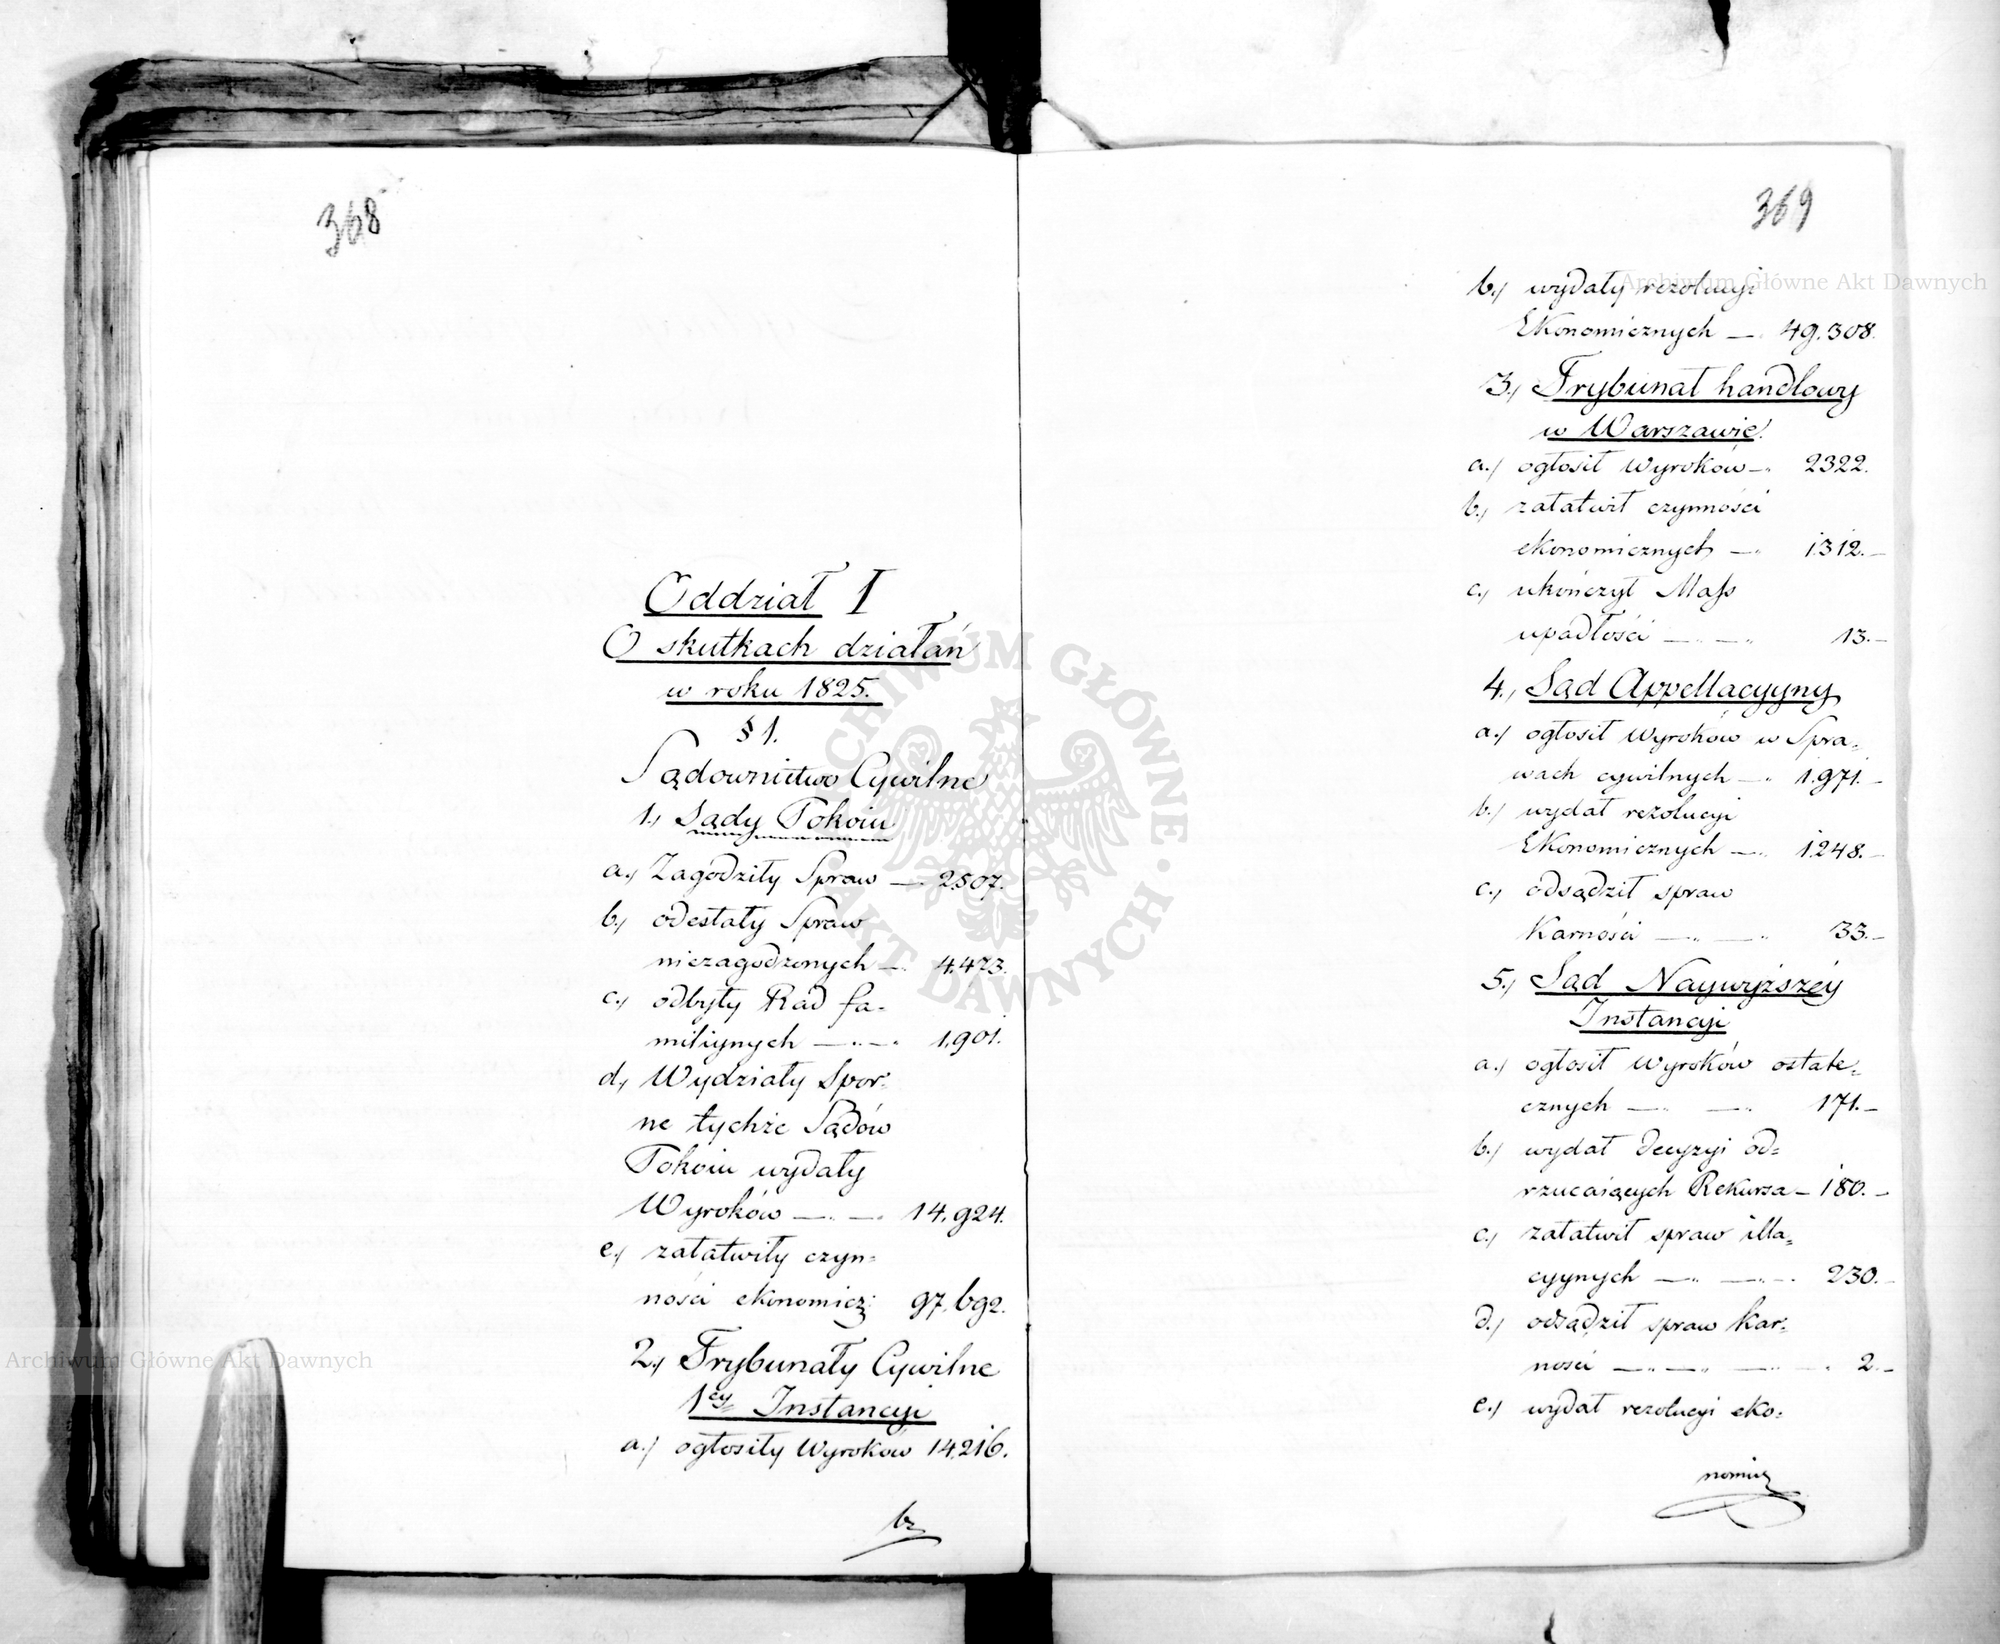 368
Oddział I
O skutkach działań
w roku 1825.
§ 1.
Sądownictwo Cywilne
1., Sądy Pokoiu
a., Zagodziły Spraw — 2507.
b., odesłały Spraw
niezagodzonych — 4.473.
c., odbyły Rad fa-
miliynych — „ — „ 1.901.
d., Wydziały Spor-
ne tychże Sądów
Pokoiu wydały
Wyroków — „ — „ 14.924.
e., załatwiły czyn-
ności ekonomicz: 97.692.
2., Trybunały Cywilne
1éy Instancyi
a., ogłosiły Wyroków 14.216.
b.,
369
b., wydały rezolucyi
Ekonomicznych — „ 49.308.
3., Trybunał handlowy
w Warszawie.
a., ogłosił Wyroków — „ 2322.
b., załatwił czynności
ekonomicznych — „ 1312. —
c., ukończył Mass
upadłości — „ — „ 13. —
4., Sąd Appellacyyny
a., ogłosił Wyroków w Spra-
wach cywilnych — „ 1.971. —
b., wydał rezolucyi
Ekonomicznych — „ 1.248. —
c., odsądził spraw
Karności — „ — „ 33. —
5., Sąd Naywyższéy
Instancyi
a., ogłosił Wyroków ostate-
cznych — „ — „ 171. —
b., wydał decyzyi od-
rzucaiących Rekursa — 180. —
c., załatwił spraw illa-
cyynych — „ — „ 230. —
d., odsądził spraw kar-
ności — „ — „ — „ — „ 2. —
e., wydał rezolucyi eko-
nomicz
Archiwum Główne Akt Dawnych
Archiwum Główne Akt Dawnych
ARCHIWUM GŁÓWNE AKT DAWNYCH